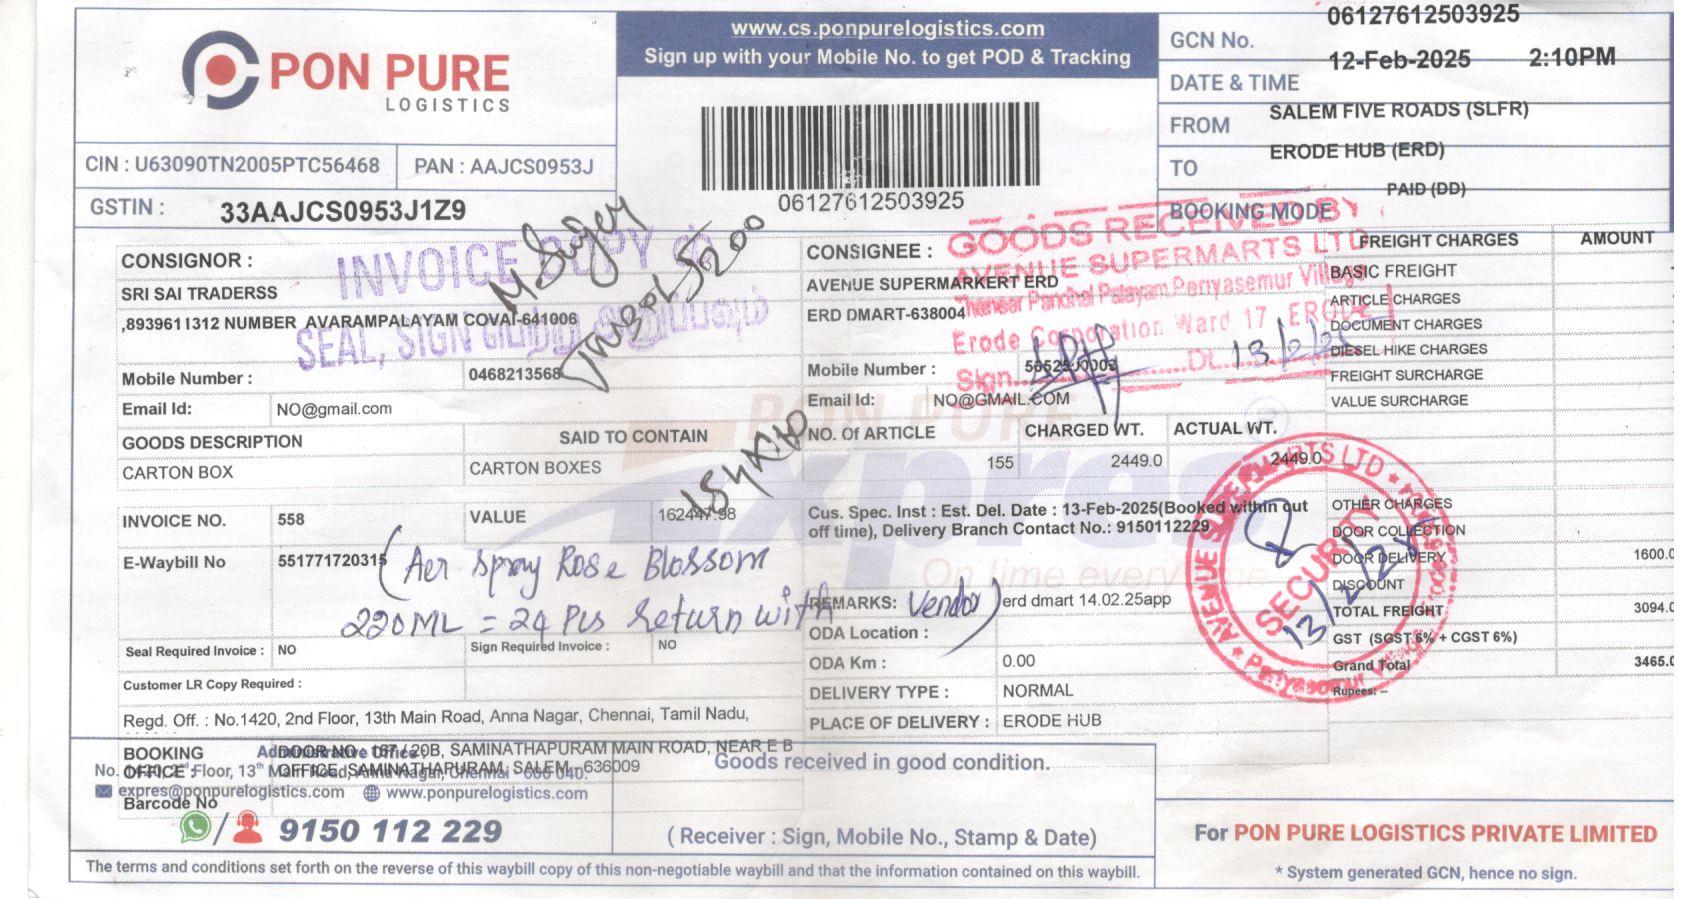 PON PURE
LOGISTICS
www.cs.ponpurelogistics.com
Sign up with your Mobile No. to get POD & Tracking
06127612503925
GCN No.
06127612503925
DATE & TIME
12-Feb-2025 2:10PM
FROM
SALEM FIVE ROADS (SLFR)
TO
ERODE HUB (ERD)
BOOKING MODE
PAID (DD)
CIN : U63090TN2005PTC56468
PAN : AAJCS0953J
GSTIN : 33AAJCS0953J1Z9
CONSIGNOR :
SRI SAI TRADERSS
,8939611312 NUMBER AVARAMPALAYAM COVAI-641006
INVOICE COPY
SEAL, SIGN
Mobile Number : 0468213568
Email Id: NO@gmail.com
GOODS DESCRIPTION SAID TO CONTAIN
CARTON BOX CARTON BOXES
INVOICE NO. 558 VALUE 162447.98
E-Waybill No 551771720315
(Aer Spray Rose Blossom
220ML = 24 Pcs Return with
Vendor)
Seal Required Invoice : NO Sign Required Invoice : NO
Customer LR Copy Required :
Regd. Off. : No.1420, 2nd Floor, 13th Main Road, Anna Nagar, Chennai, Tamil Nadu,
CONSIGNEE :
AVENUE SUPERMARKERT ERD
ERD DMART-638004
GOODS RECEIVED BY
AVENUE SUPERMARTS LTD
Thaneer Pandhal Palayam, Perryasemur Village
Erode Corporation Ward 17 ERODE
Sign. DL. 13/2/25
Mobile Number :
Email Id: NO@GMAIL.COM
PON PURE
Xpres
On time every time
NO. Of ARTICLE CHARGED WT. ACTUAL WT.
155 2449.0 2449.0
Cus. Spec. Inst : Est. Del. Date : 13-Feb-2025(Booked within cut
off time), Delivery Branch Contact No.: 9150112229
REMARKS: erd dmart 14.02.25app
ODA Location :
ODA Km : 0.00
DELIVERY TYPE : NORMAL
PLACE OF DELIVERY : ERODE HUB
FREIGHT CHARGES AMOUNT
BASIC FREIGHT
ARTICLE CHARGES
DOCUMENT CHARGES
DIESEL HIKE CHARGES
FREIGHT SURCHARGE
VALUE SURCHARGE
OTHER CHARGES
DOOR COLLECTION
DOOR DELIVERY 1600.0
DISCOUNT
TOTAL FREIGHT 3094.0
GST (SGST 6% + CGST 6%)
Grand Total 3465.0
Rupees: --
AVENUE SUPERMARTS LTD
SECURITY
13/2/25
BOOKING OFFICE : DOOR NO : 157 / 20B, SAMINATHAPURAM MAIN ROAD, NEAR E B
OFFICE, SAMINATHAPURAM, SALEM - 636009
Administrative Office :
No. 1420, 2nd Floor, 13th Main Road, Anna Nagar, Chennai - 600 040.
expres@ponpurelogistics.com www.ponpurelogistics.com
Barcode No
/ 9150 112 229
Goods received in good condition.
( Receiver : Sign, Mobile No., Stamp & Date)
For PON PURE LOGISTICS PRIVATE LIMITED
* System generated GCN, hence no sign.
The terms and conditions set forth on the reverse of this waybill copy of this non-negotiable waybill and that the information contained on this waybill.